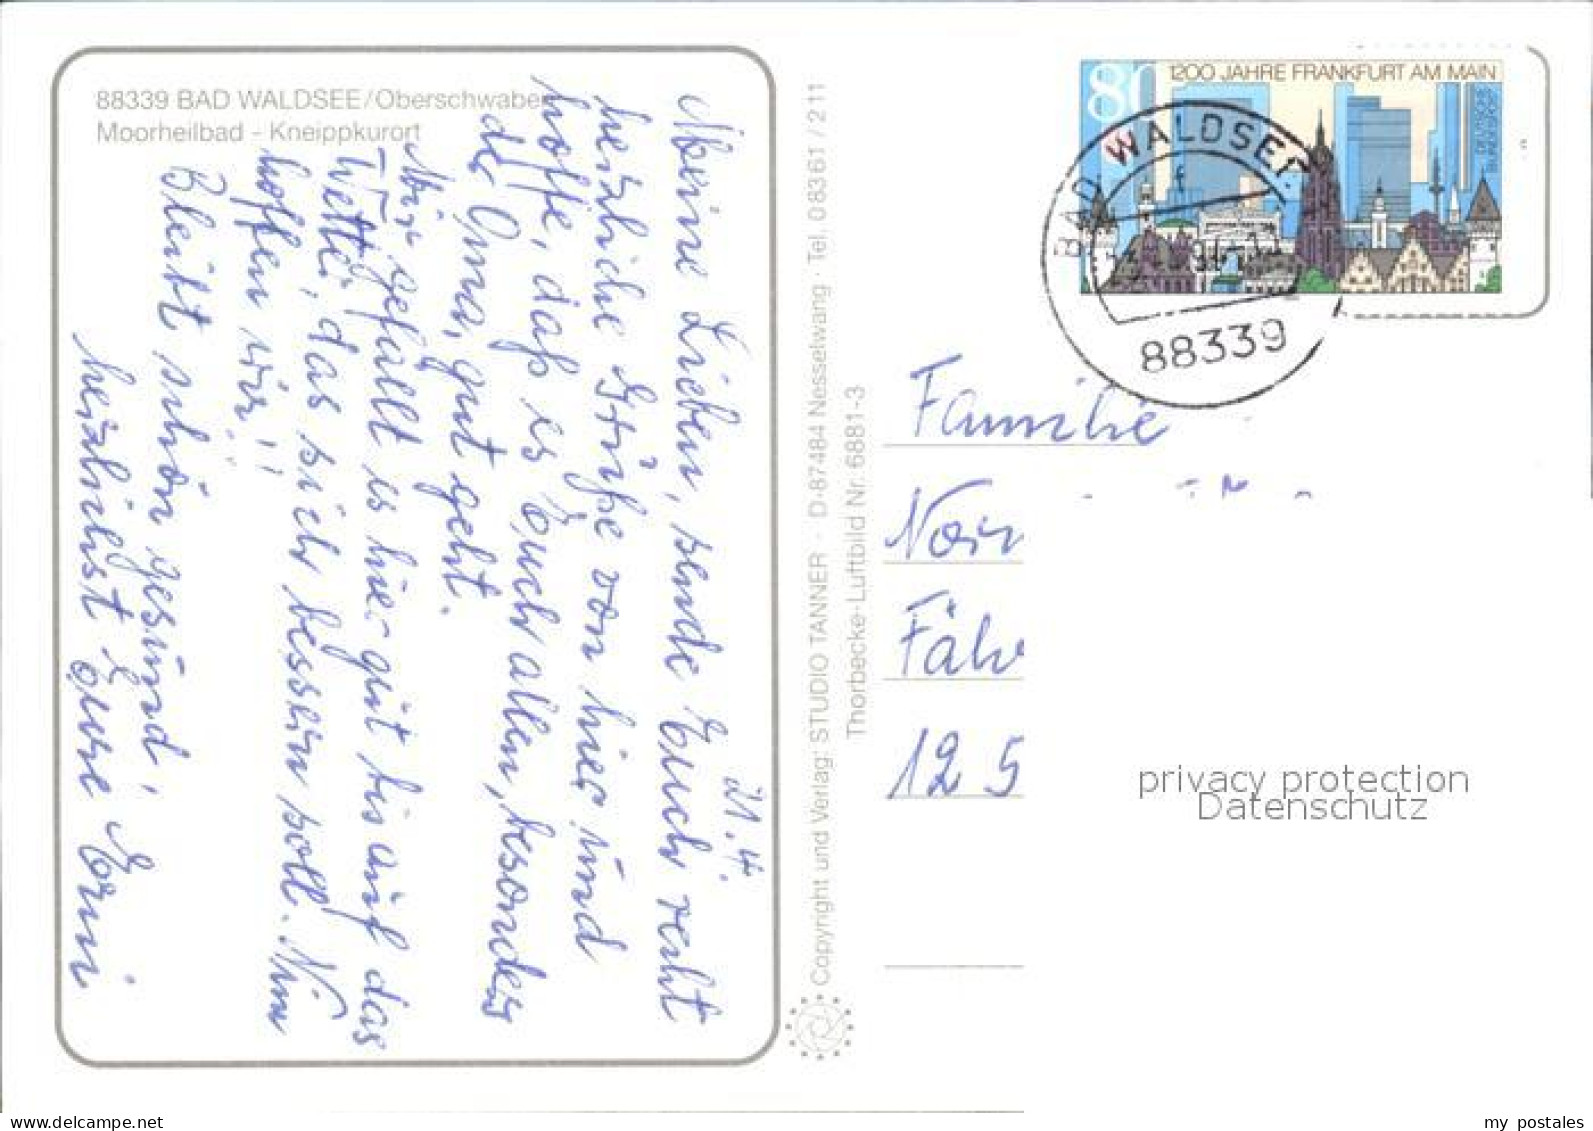 88339 BAD WALDSEE/Oberschwaben
Moorheilbad - Kneippkurort
21.4.
Meine Lieben, sende Euch recht
herzliche Grüße von hier und
hoffe, daß es Euch allen, besonders
der Oma, gut geht.
Mir gefällt es hier gut bis auf das
Wetter, das sich bessern soll. Nun
hoffen wir!!
Bleibt schön gesund,
herzlichst Eure Erni
Copyright und Verlag: STUDIO TANNER · D-87484 Nesselwang · Tel. 08361/211
Thorbecke-Luftbild Nr. 6881-3
80
1200 JAHRE FRANKFURT AM MAIN
DEUTSCHE
BUNDESPOST
BAD WALDSEE
88339
Familie
Fäh
12 5
privacy protection
Datenschutz
delcampe.net
my_postales